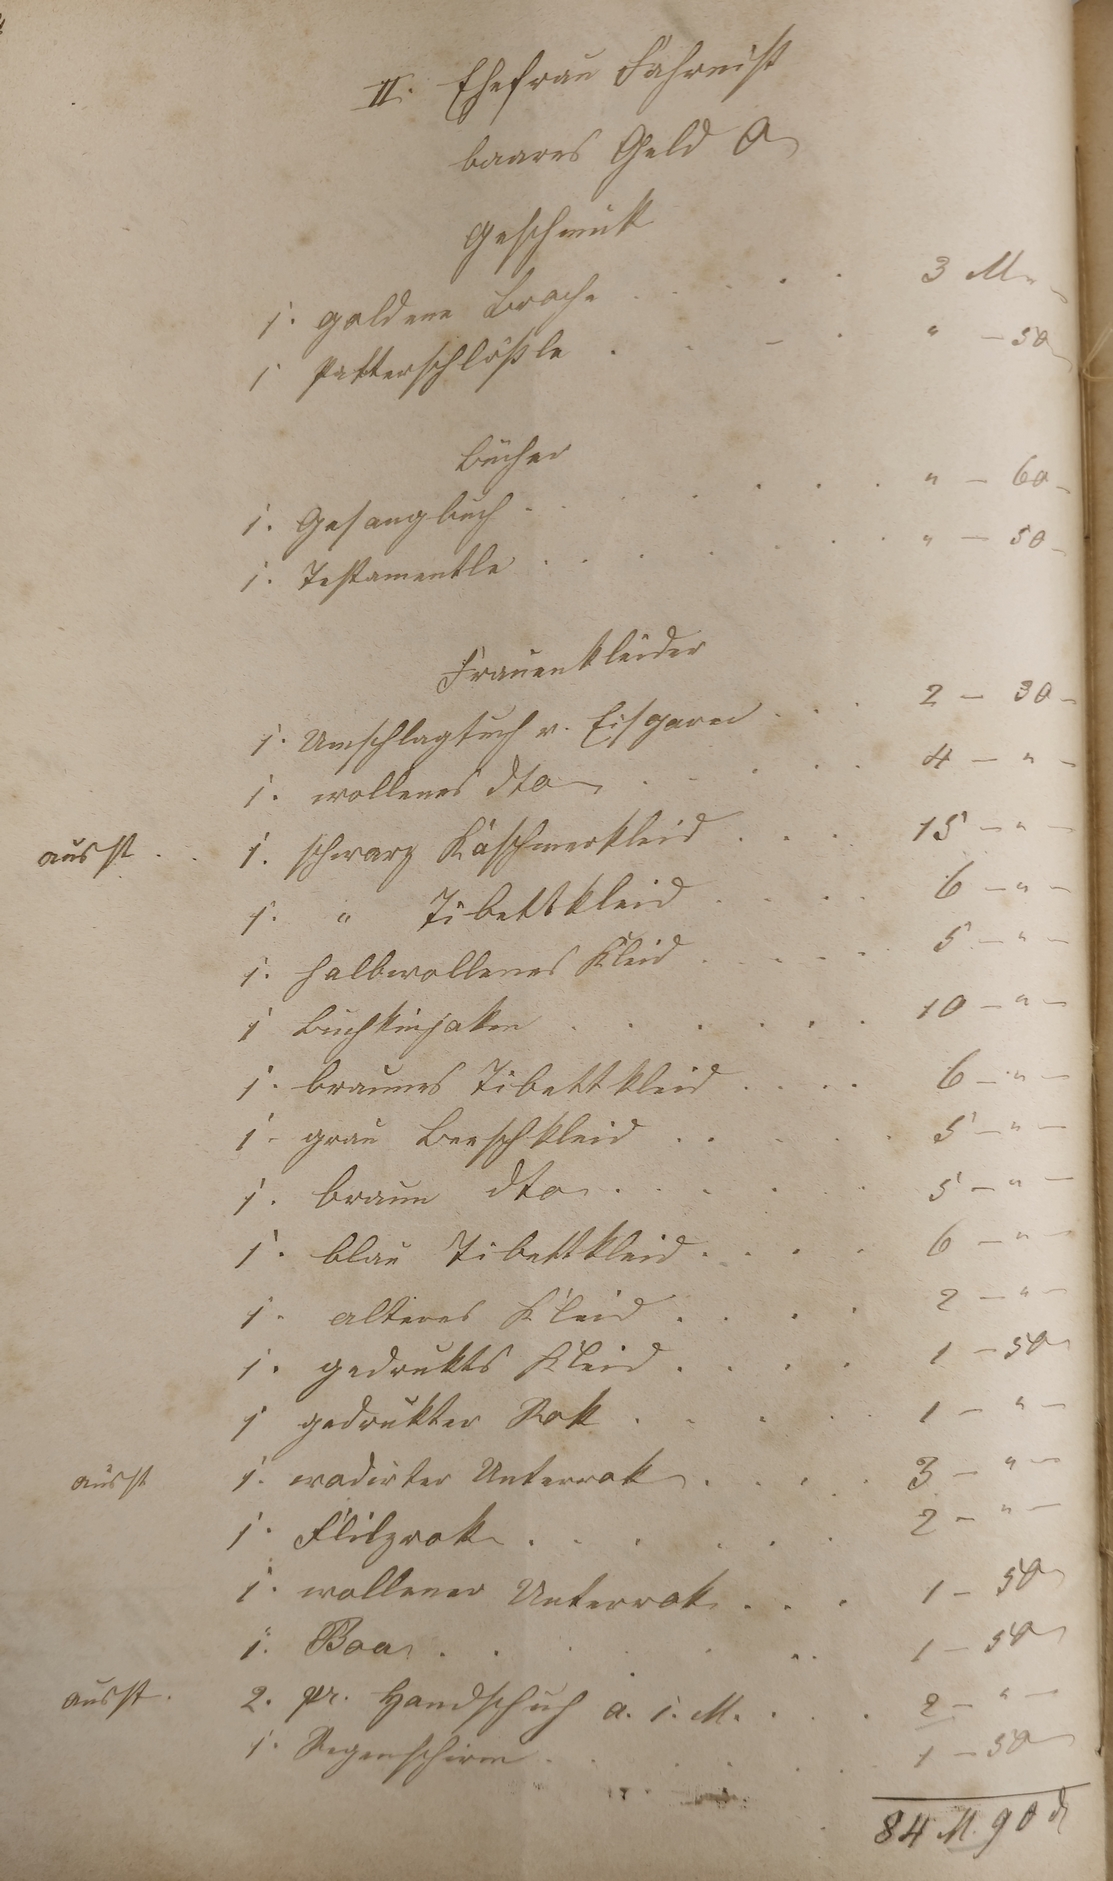 II. Ehefrau Fahrnist
baares Geld 0
Geschmuk
1. goldene Broche . . . . . 3 M. "
1 Patterschlößle . . – . " – 50
Bücher
1. Gesangbuch . . . . . . " – 60 –
1. Testamentle . . . . . . " – 50 –
Frauenkleider
1. Umschlagtuch v. Eisgarn . . . 2 – 30 –
1. wollenes dto . . . . . 4 – " –
ausst . . 1. schwarz Kaschmerkleid . . . 15 – " –
1. " Tibettkleid . . . . 6 – " –
1. halbwollenes Kleid . . . . . 5 – " –
1 Buchkinjaken . . . . . . 10 – " –
1. braunes Tibettkleid . . . . 6 – " –
1. grau Beeschkleid . . . . . 5 – " –
1. braun dto . . . . . 5 – " –
1. blau Tibettkleid . . . . 6 – " –
1. alteres Kleid . . . . 2 – " –
1. gedrukts Kleid . . . . 1 – 50
1 gedrukter Rok . . . . . 1 – " –
ausst 1. wadirter Unterrok . . . . 3 – " –
1. Filzrok . . . . . . 2 – " –
1. wollener Unterrok . . . 1 – 50
1. Boa . . . . . . 1 – 50
ausst . 2. pr. Handschuh a. 1. M. . . . 2 – " –
1. Regenschirm . . . . . 1 – 50
84 M. 90 d